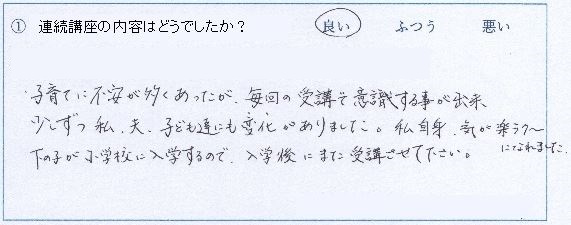 ① 連続講座の内容はどうでしたか? 良い ふつう 悪い
子育てに不安が多くあったが、毎回の受講で意識する事が出来
少しずつ私、夫、子ども達にも変化がありました。私自身、気が楽ラク〜
になれました。
下の子が小学校に入学するので、入学後にまた受講させて下さい。